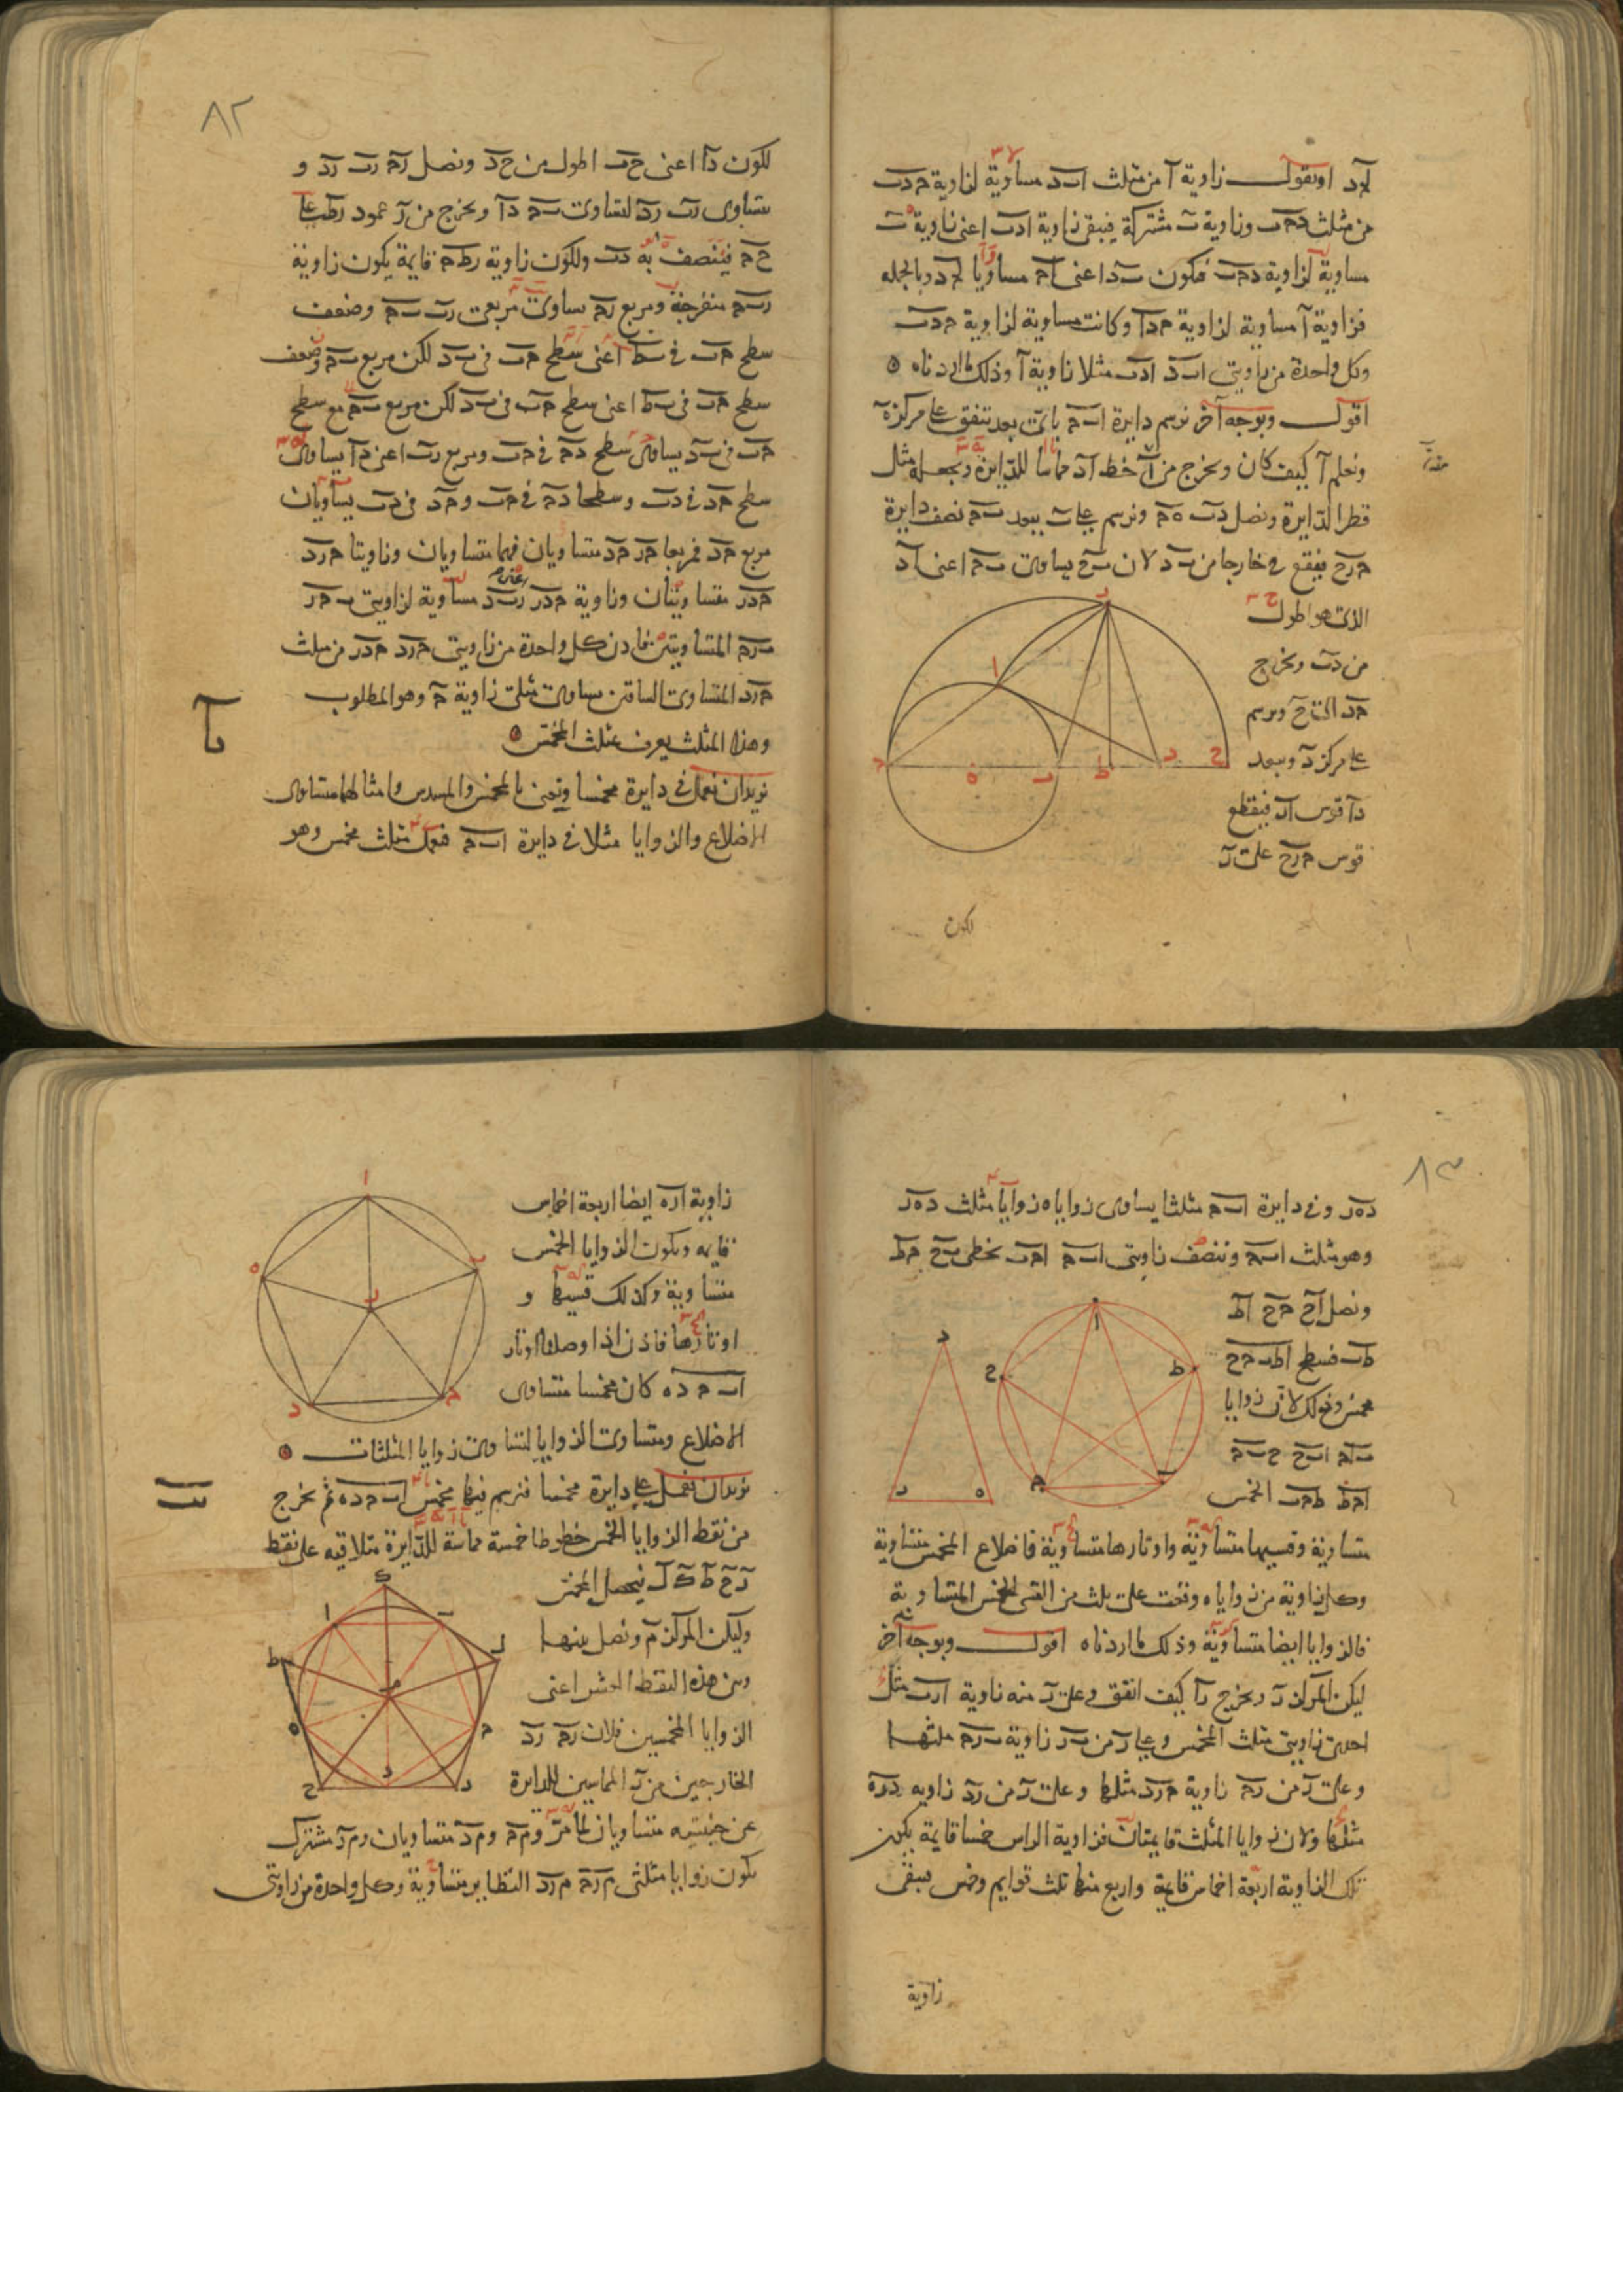 لاد او نقول زاوية ا من مثلث ابد مساوية لزاوية حدب
من مثلث دحب وزاوية ب مشتركة فيبقى زاوية ادب اعنى زاوية ب
مساوية لزاوية دحب فيكون بد اعنى اح مساويا لحد وبالجملة
فزاوية ا مساوية لزاوية حدا وكانت مساوية لزاوية حدب
وكل واحدة من زاويتى ابد ادب مثلا زاوية ا وذلك ما اردناه
اقول وبوجه آخر نرسم دايرة ابح باى بعد يتفق على مركز ه
ونعلم ا كيف كان ونخرج من ا خط اد مماسا للدايرة ونجعله مثل
قطر الدايرة ونصل دب ه ح ونرسم على ب ببعد بح نصف دايرة
حرح فيقع ح خارجا من بد لان بح يساوى بح اعنى اد
الذى هو اطول
من دب ونخرج
حد الى ح ونرسم
على مركز د وببعد
دا قوس ار فيقطع
قوس حرح على ر
ا
ر
ح
ه
ب
ط
د
ح
لكون
٨٢
لكون دا اعنى حب اطول من حد ونصل رح رب رد و
يتساوى رب رد لتساوى بح دا ونخرج من ر عمود رط على
حح فينصف به دب ولكون زاوية رطح قايمة يكون زاوية
ربح منفرجة ومربع رح يساوى مربعى رب بح وضعف
سطح حب فى بط اعنى سطح حب فى بد لكن مربع بح وضعف
سطح حب فى بط اعنى سطح حب فى بد لكن مربع بح مع سطح
حب فى بد يساوى سطح دح فى حب ومربع رب اعنى دا يساوى
سطح حد فى دب وسطحا دح فى حب وحد فى دب يساويان
مربع حد فمربعا حر حد متساويان فهما متساويان وزاويتا حرد
حدر متساويتان وزاوية حدر اعنى ربد مساوية لزاويتى بحر
برح المتساويتين فاذن كل واحدة من زاويتى حرد حدر من مثلث
حرد المتساوى الساقين يساوى مثلى زاوية ح وهو المطلوب
وهذا المثلث يعرف بمثلث المخمس
يا
نريد ان نعمل فى دايرة مخمسا ونعنى بالمخمس والمسدس وامثالهما متساوى
الاضلاع والزوايا مثلا فى دايرة ابح فنعمل مثلث مخمس وهو
٨٣
دهر وفى دايرة ابح مثلثا يساوى زواياه زوايا مثلث دهر
وهو مثلث ابح وننصف زاويتى ابح احب بخطى بح حط
ونصل اح حح اط
طب فسطح اطبحح
مخمس وذلك لان زوايا
باح ابح حبح
احط طحب الخمس
د
ر
ه
ا
ح
ط
ح
ب
متساوية وقسيها متساوية واوتارها متساوية فاضلاع المخمس متساوية
وكل زاوية من زواياه وقعت على ثلث من القسى الخمس المتساوية
فالزوايا ايضا متساوية وذلك ما اردناه اقول وبوجه آخر
ليكن المركز ر ونخرج را كيف اتفق وعلى ر منه زاوية ارب مثل
احدى زاويتى مثلث المخمس وعلى ر من بر زاوية برح مثلها
وعلى ر من رح زاوية حرد مثلها وعلى ر من رد زاويه دره
مثلها ولان زوايا المثلث قايمتان فزاوية الراس خمسا قايمة يكون
تلك الزاوية اربعة اخماس قايمة واربع منها ثلث قوايم وخمس فيبقى
زاوية
زاوية اره ايضا اربعة اخماس
قايمه ويكون الزوايا الخمس
متساوية وكذلك قسيها و
اوتارها فاذن اذا وصلنا اوتار
اب ح د ه كان مخمسا متساوى
الاضلاع ومتساوى الزوايا لتساوى زوايا المثلثات
ا
ب
ه
ر
د
ح
يب
نريد ان نعمل على دايرة مخمسا فنرسم فيها مخمس اب ح د ه ثم نخرج
من نقط الزوايا الخمس خطوطا خمسة مماسة للدايرة متلاقيه على نقط
ر ح ط ك ل فيحصل المخمس
وليكن المركز م ونصل بينها
وبين هذه النقط العشر اعنى
الزوايا المخمسين فلان رح رد
الخارجين من ر المماسين للدايرة
ك
ا
ب
ط
ل
م
ه
ح
ح
د
ر
عن جنبتيه متساويان لما مر وم ح وم د متساويان ورم مشترك
يكون زوايا مثلثى م رح م رد النظاير متساوية وكل واحدة من زاويتى